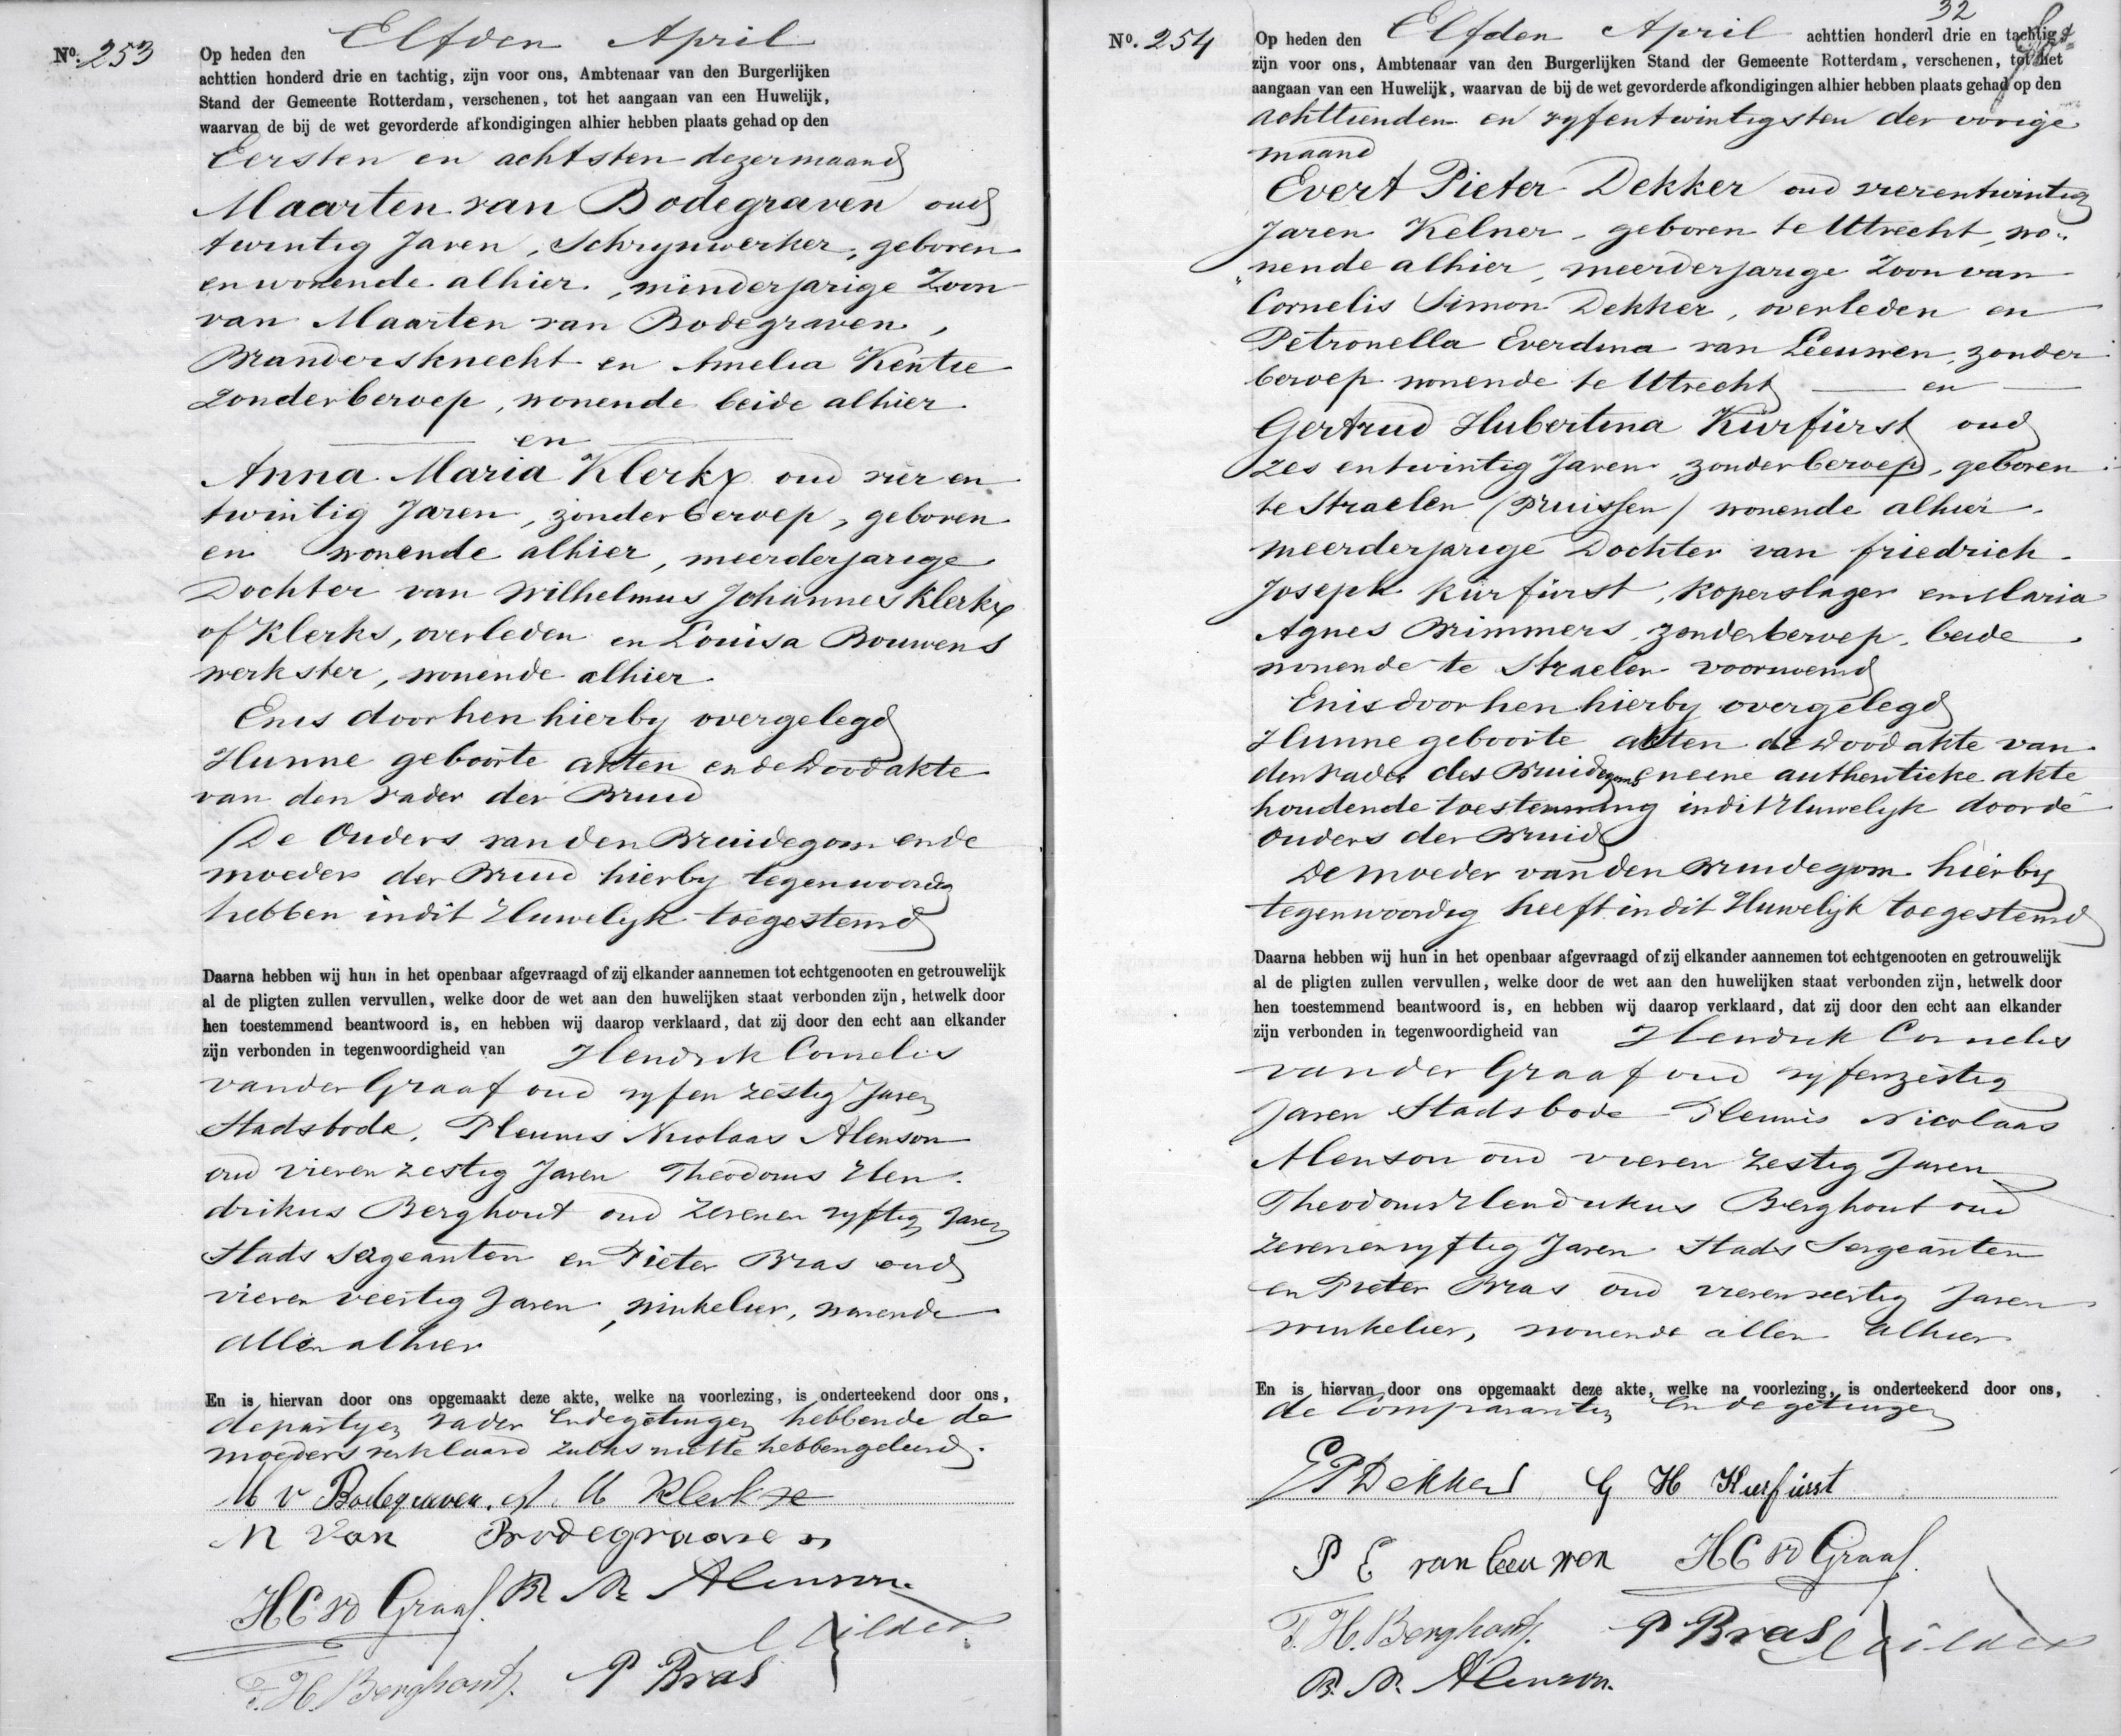 No. 253
Op heden den Elfden April
achttien honderd drie en tachtig, zijn voor ons, Ambtenaar van den Burgerlijken
Stand der Gemeente Rotterdam, verschenen, tot het aangaan van een Huwelijk,
waarvan de bij de wet gevorderde afkondigingen alhier hebben plaats gehad op den
Eersten en achtsten dezer maand
Maarten van Bodegraven oud
twintig Jaren, Schrynwerker, geboren
en wonende alhier, minderjarige Zoon
van Maarten van Bodegraven,
Brandersknecht en Amelia Kentie
zonder beroep, wonende beide alhier
en
Anna Maria Klerkx oud vier en
twintig Jaren, zonder beroep, geboren
en wonende alhier, meerderjarige
Dochter van Wilhelmus Johannes Klerkx
of Klerks, overleden en Louisa Bouwens
werkster, wonende alhier
En is door hen hierby overgelegd
Hunne geboorte akten en de Doodakte
van den vader der Bruid
De Ouders van den Bruidegom en de
moeder der Bruid hierby tegenwoordig
hebben in dit Huwelyk toegestemd
Daarna hebben wij hun in het openbaar afgevraagd of zij elkander aannemen tot echtgenooten en getrouwelijk
al de pligten zullen vervullen, welke door de wet aan den huwelijken staat verbonden zijn, hetwelk door
hen toestemmend beantwoord is, en hebben wij daarop verklaard, dat zij door den echt aan elkander
zijn verbonden in tegenwoordigheid van Hendrik Cornelis
van der Graaf oud vyf en zestig Jaren
Stadsbode, Pleunis Nicolaas Alenson
oud vier en zestig Jaren Theodorus Hen
drikus Berghout oud zeven en vyftig Jaren
Stads Sergeanten en Pieter Bras oud
vier en veertig Jaren, winkelier, wonende
allen alhier
En is hiervan door ons opgemaakt deze akte, welke na voorlezing, is onderteekend door ons,
de partyen vader en de getuigen hebbende de
moeders verklaard zulks niet te hebben geleerd.
M v Bodegraven. A. M Klerkx
M van Bodegraven
HC vd Graaf. P. N. Alenson.
T. H. Berghout. P Bras
No. 254
32
Op heden den Elfden April achttien honderd drie en tachtig
zijn voor ons, Ambtenaar van den Burgerlijken Stand der Gemeente Rotterdam, verschenen, tot het
aangaan van een Huwelijk, waarvan de bij de wet gevorderde afkondigingen alhier hebben plaats gehad op den
achttienden en vyfentwintigsten der vorige
maand
Evert Pieter Dekker oud vierentwintig
Jaren Kelner, geboren te Utrecht, wo„
„nende alhier, meerderjarige Zoon van
Cornelis Simon Dekker, overleden en
Petronella Everdina van Leeuwen, zonder
beroep wonende te Utrecht en
Gertrud Hubertina Kürfürst oud
zes en twintig Jaren, zonder beroep, geboren
te Straelen (Pruissen) wonende alhier
meerderjarige Dochter van friedrich
Joseph Kürfürst, koperslager en Maria
Agnes Brimmers, zonder beroep, beide
wonende te Straelen voornoemd
En is door hen hierby overgelegd
Hunne geboorte akten de Doodakte van
den vader des Bruidegoms en eene authentieke akte
houdende toestemming in dit Huwelyk door de
Ouders der Bruid
De moeder van den Bruidegom hierby
tegenwoordig heeft in dit Huwelyk toegestemd
Daarna hebben wij hun in het openbaar afgevraagd of zij elkander aannemen tot echtgenooten en getrouwelijk
al de pligten zullen vervullen, welke door de wet aan den huwelijken staat verbonden zijn, hetwelk door
hen toestemmend beantwoord is, en hebben wij daarop verklaard, dat zij door den echt aan elkander
zijn verbonden in tegenwoordigheid van Hendrik Cornelis
van der Graaf oud vyfenzestig
Jaren Stadsbode Pleunis Nicolaas
Alenson oud vier en zestig Jaren
Theodorus Hendrikus Berghout oud
zevenenvyftig Jaren Stads Sergeanten
en Pieter Bras oud vierenveertig Jaren
winkelier, wonende allen alhier
En is hiervan door ons opgemaakt deze akte, welke na voorlezing, is onderteekend door ons,
de Comparanten en de getuigen
EP Dekker G H Kurfürst
P E van Leeuwen HC vd Graaf.
T. H. Berghout. P Bras
P. N. Alenson.